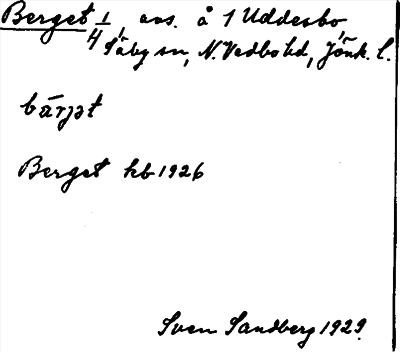 Berget 1/4, avs. å 1 Uddesbo,
Säby sn, N. Vedbo hd, Jönk. l.
bärjət
Berget hb 1926
Sven Sandberg 1929.